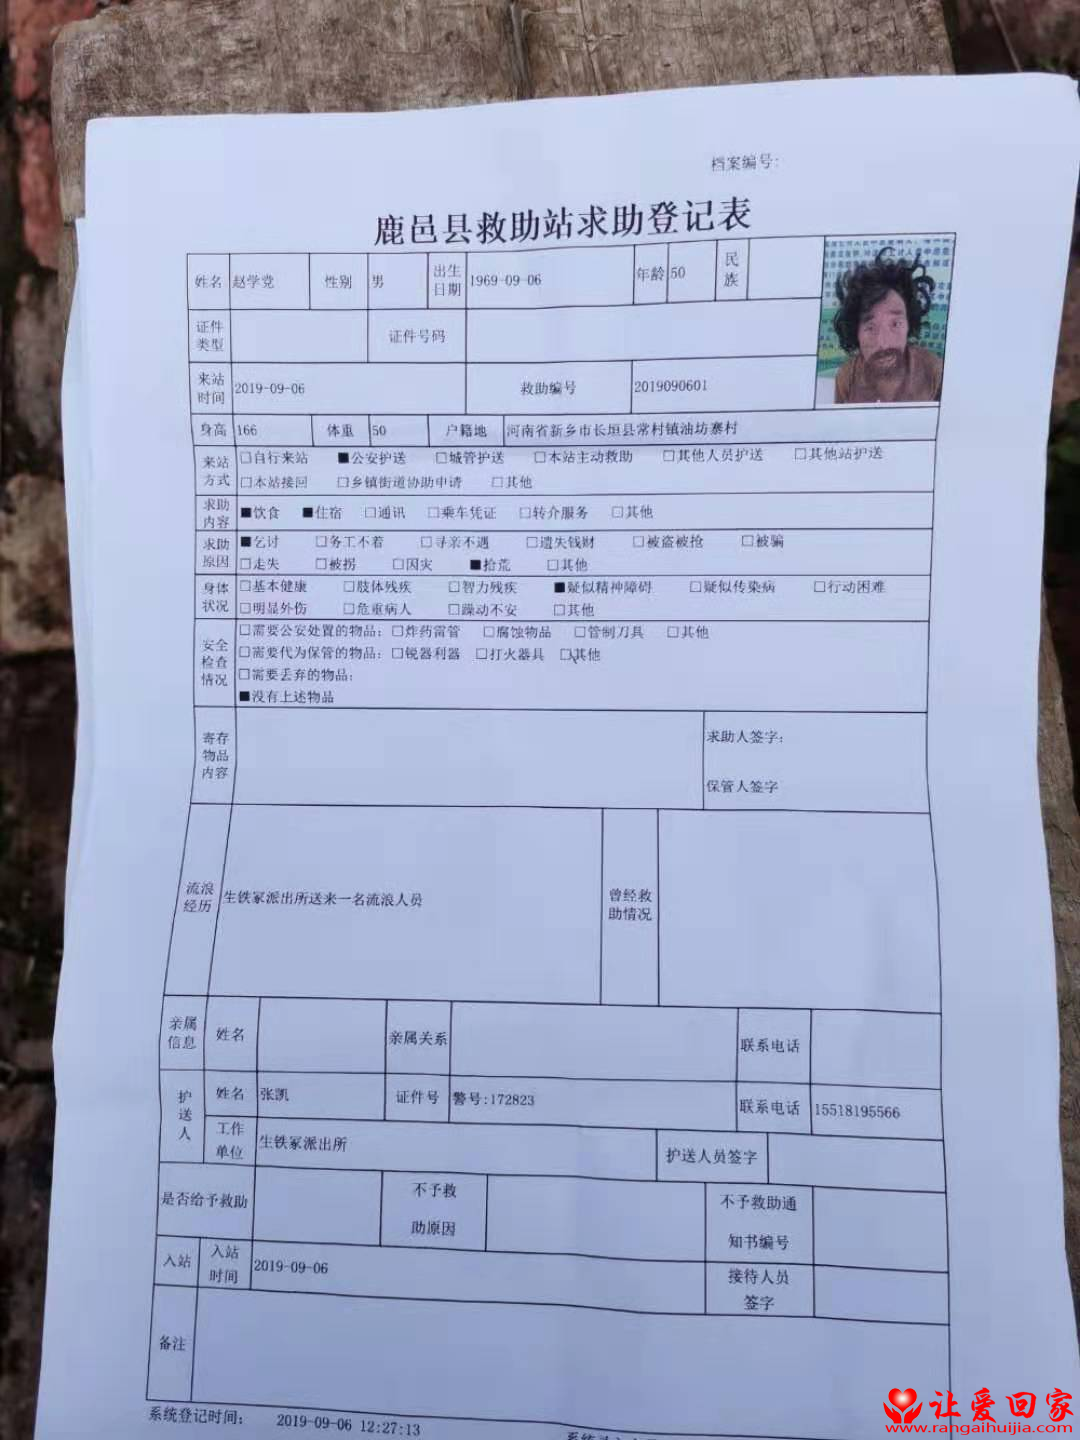 档案编号:
鹿邑县救助站求助登记表
姓名 赵学党 性别 男 出生日期 1969-09-06 年龄 50 民族
证件类型 证件号码
来站时间 2019-09-06 救助编号 2019090601
身高 166 体重 50 户籍地 河南省新乡市长垣县常村镇油坊寨村
来站方式 □自行来站 ■公安护送 □城管护送 □本站主动救助 □其他人员护送 □其他站护送
□本站接回 □乡镇街道协助申请 □其他
求助内容 ■饮食 ■住宿 □通讯 □乘车凭证 □转介服务 □其他
求助原因 ■乞讨 □务工不着 □寻亲不遇 □遗失钱财 □被盗被抢 □被骗
□走失 □被拐 □因灾 ■拾荒 □其他
身体状况 □基本健康 □肢体残疾 □智力残疾 ■疑似精神障碍 □疑似传染病 □行动困难
□明显外伤 □危重病人 □躁动不安 □其他
安全检查情况 □需要公安处置的物品: □炸药雷管 □腐蚀物品 □管制刀具 □其他
□需要代为保管的物品: □锐器利器 □打火器具 □其他
□需要丢弃的物品:
■没有上述物品
寄存物品内容 求助人签字:
保管人签字
流浪经历 生铁冢派出所送来一名流浪人员 曾经救助情况
亲属信息 姓名 亲属关系 联系电话
护送人 姓名 张凯 证件号 警号:172823 联系电话 15518195566
工作单位 生铁冢派出所 护送人员签字
是否给予救助 不予救助原因 不予救助通知书编号
入站 入站时间 2019-09-06 接待人员签字
备注
系统登记时间: 2019-09-06 12:27:13
让爱回家
www.rangaihuijia.com